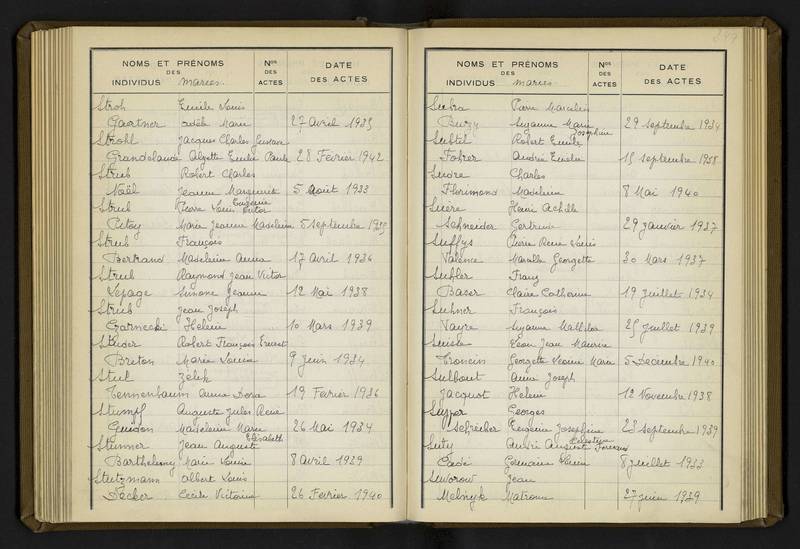 NOMS ET PRÉNOMS
DES
INDIVIDUS mariés.
Nos
DES
ACTES
DATE
DES ACTES
Stroh Emile Louis
Gaertner Adèle Marie 27 Avril 1935
Strohl Jacques Charles Gustave
Grandclaude Emilie Paule 28 Fevrier 1942
Strub Robert Charles
Noël Jeanne Marguerite 5 Août 1933
Strub Pierre Louis Eugénie Victor
Pitoy Marie Jeanne Madeleine 5 septembre
Strub François
Bertrand Madeleine Anna 17 Avril 1936
Strub Raymond Jean Victor
Lepage Simone Jeanne 12 Mai 1938
Strub Jean Joseph
Garnecki Helene 10 Mars 1939
Studer Robert François Ernest
Breton Marie Louise 9 Juin 1934
Stul Zelik
Tennenbaum Anna Dora 19 Fevrier 1936
Stumpf Auguste Jules
Guidon Madeleine Marie 26 Mai 1934
Stunner Jean Auguste Elisabeth
Barthelemy Marie Louise 8 Avril 1939
Stutzmann Albert Louis
Decker Cécile Victorine 26 Fevrier 1940
NOMS ET PRÉNOMS
DES
INDIVIDUS mariés.
Nos
DES
ACTES
DATE
DES ACTES
Subra Pierre Marcelin
Suzanne Marie 29 septembre 1934
Subtil Robert Emile Joséphine
Fohrer Andrée 15 septembre 1938
Sudre Charles
Florimond Madeleine 8 Mai 1940
Suère Henri Achille
Schneider Gertrude 29 Janvier 1937
Suffys Pierre René Louis
Valence Marcelle Georgette 30 Mars 1937
Suhler Franz
Baser Claire Catherine 19 Juillet 1934
Suhner François
Vayre Suzanne Mathilde 25 Juillet 1939
Suisse Léon Jean Maurice
Troncin Georgette Jeanne Marie 5 Decembre 1940
Sulbout Aimé Joseph
Jacquot Helene 12 Novembre 1938
Supper Georges
Schriecker Eugénie Joséphine 23 septembre 1939
Suty André Auguste Célestin
Cadé Germaine 8 Juillet 1933
Suworow Jean
Melnyk Matrone 27 Juin 1939